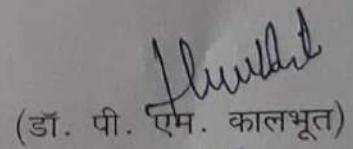 (डॉ. पी. एम. कालभूत)